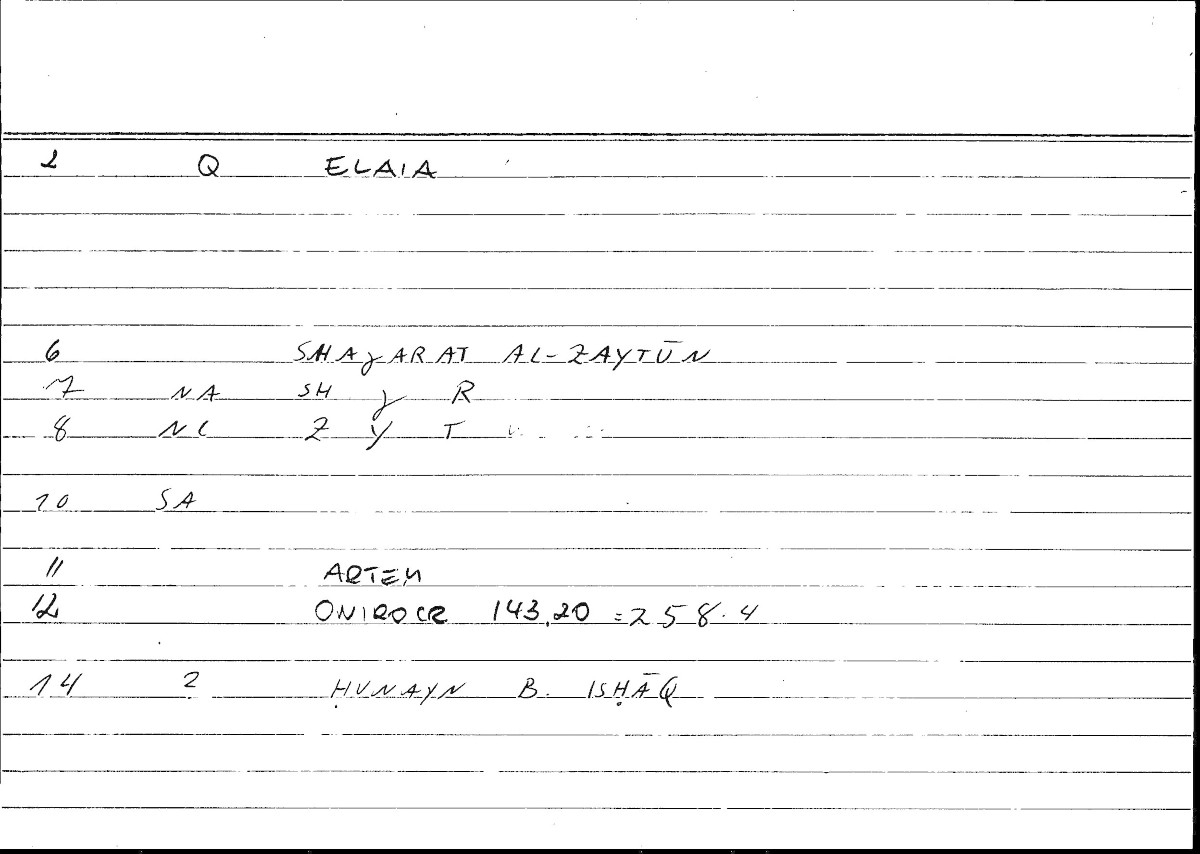 2 Q ELAIA
6 SHAɣARAT AL-ZAYTŪN
7 NA SH ɣ R
8 NC Z Y T
10 SA
11 ARTEM
12 ONIROCR 143,20 = 258.4
14 2 ḤUNAYN B. ISḤĀQ